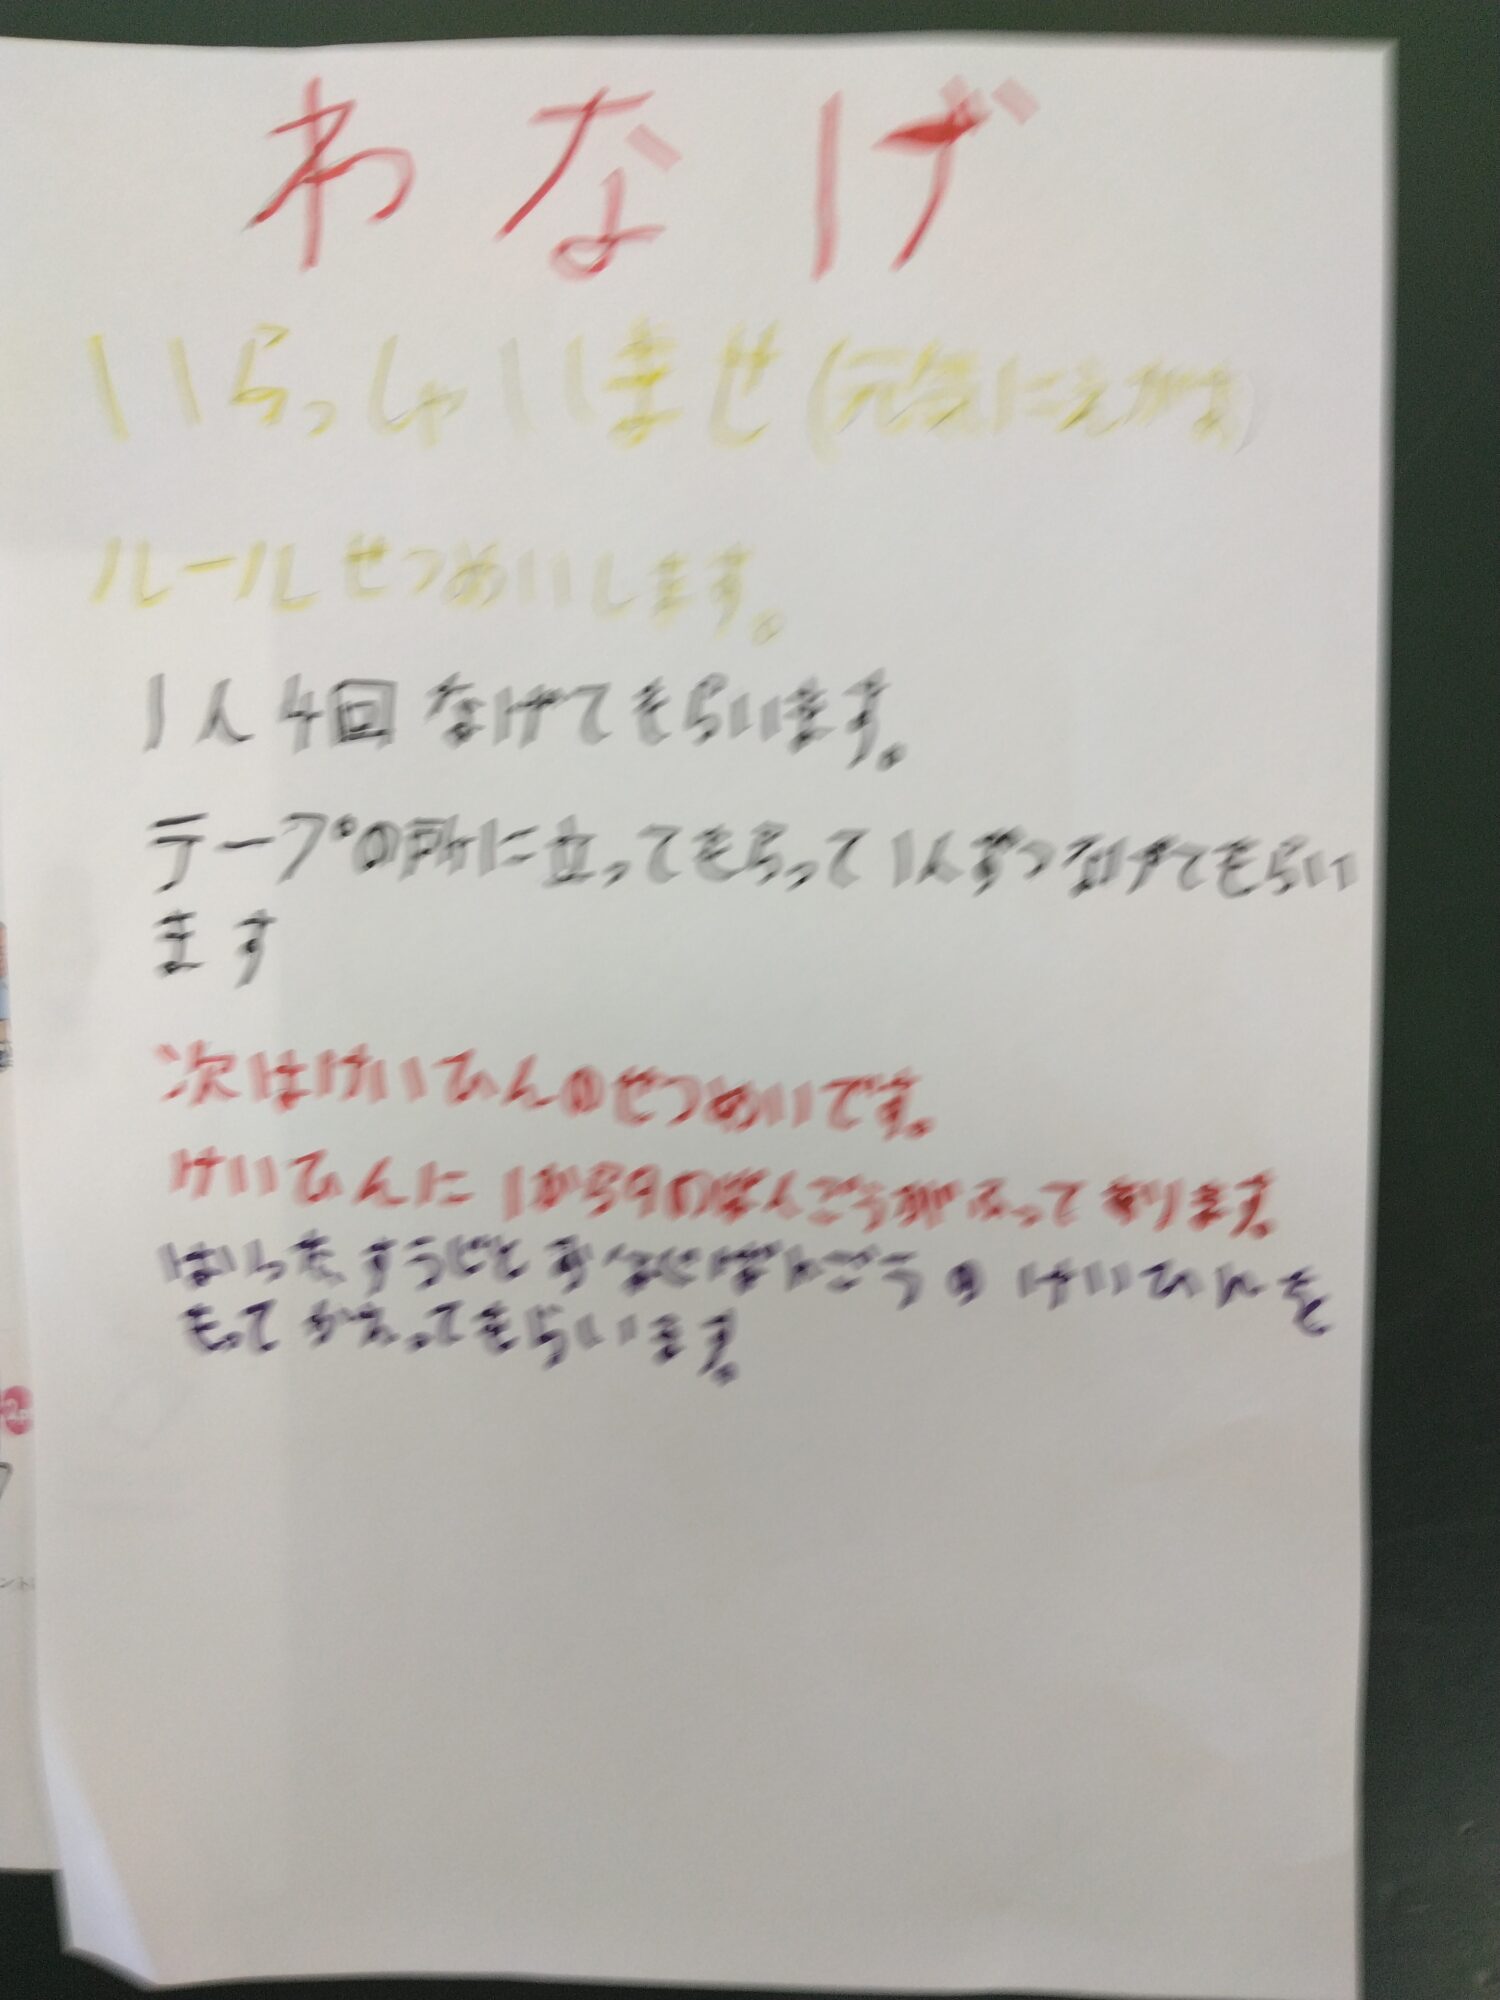 わなげ
いらっしゃいませ(元気にえがお)
ルールせつめいします。
1人4回なげてもらいます。
テープの所に立ってもらって1人ずつなげてもらい
ます
次はけいひんのせつめいです。
けいひんに1から9のばんごうがふってあります。
はいったすうじとおなじばんごうのけいひんを
もってかえってもらいます。